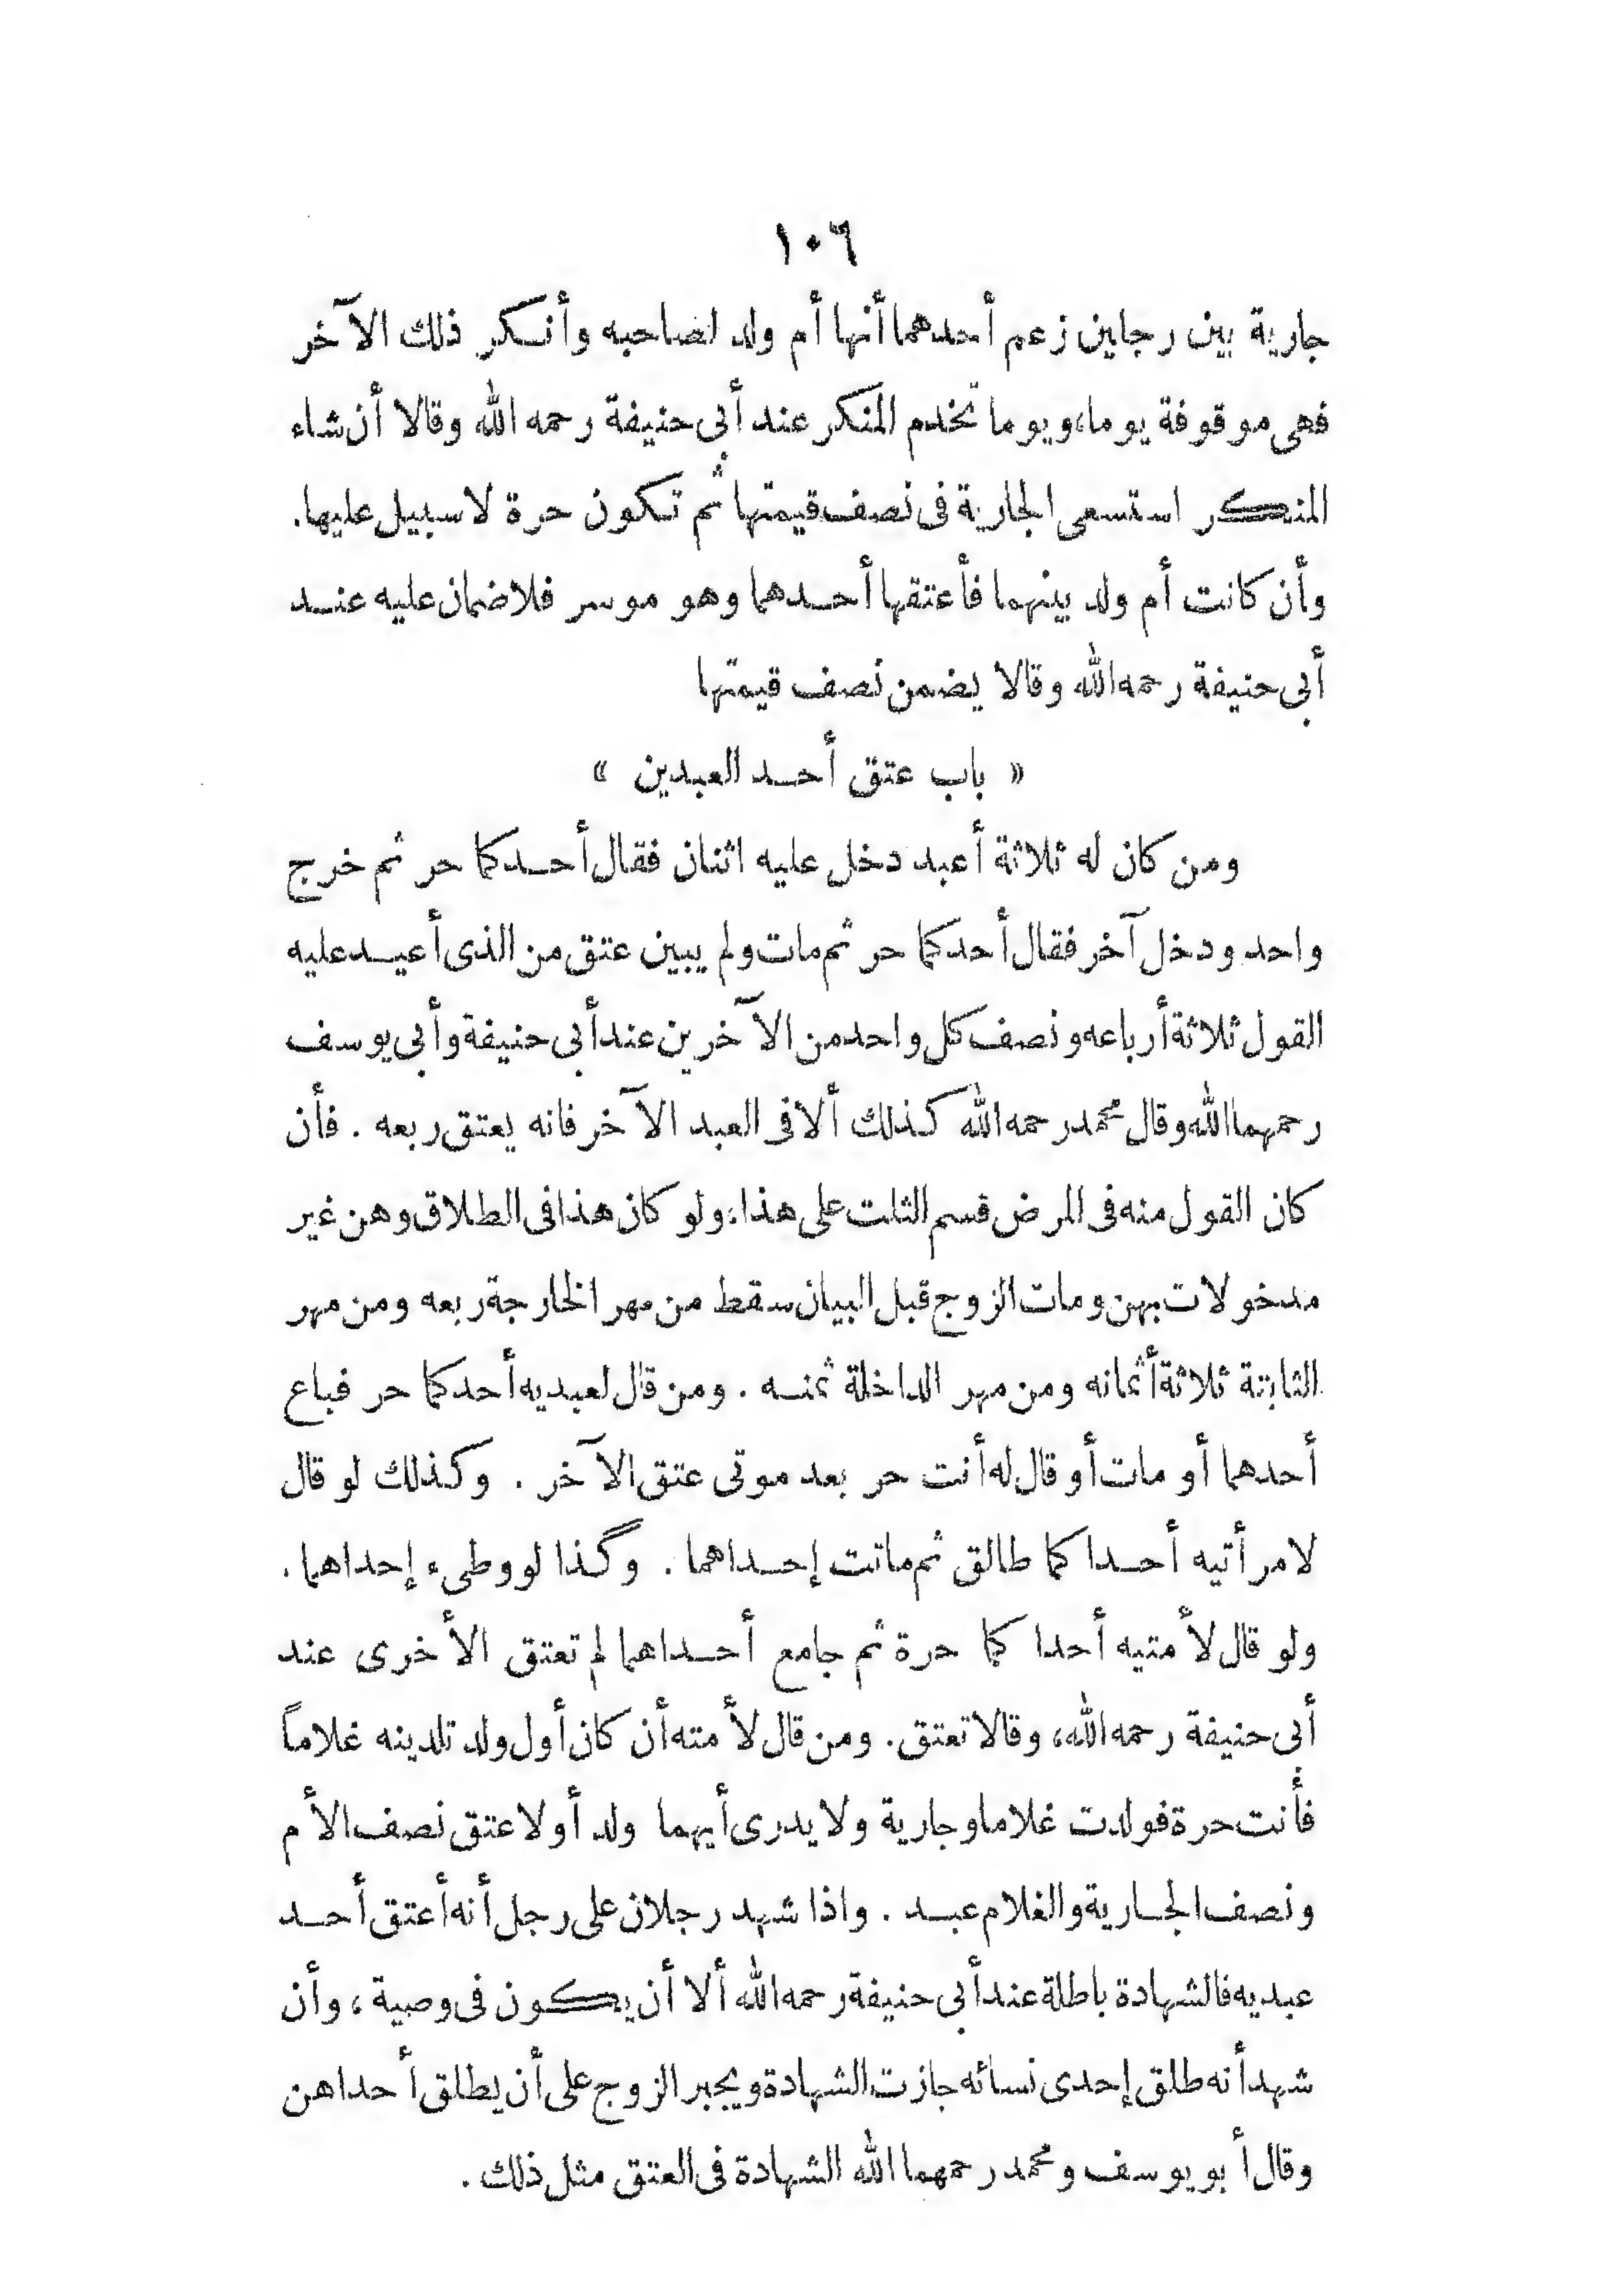 ١٠٦
جارية بين رجلين زعم أحدهما أنها أم ولد لصاحبه وأنكر ذلك الآخر
فهى موقوفة يوما، ويوما تخدم المنكر عند أبى حنيفة رحمه الله وقالا أن شاء
المنكر استسعى الجارية فى نصف قيمتها ثم تكون حرة لا سبيل عليها.
وأن كانت أم ولد بينهما فأعتقها أحدهما وهو موسر فلا ضمان عليه عند
أبى حنيفة رحمه الله وقالا يضمن نصف قيمتها
« باب عتق أحد العبدين »
ومن كان له ثلاثة أعبد دخل عليه اثنان فقال أحدكما حر ثم خرج
واحد ودخل آخر فقال أحدكما حر ثم مات ولم يبين عتق من الذى أعيد عليه
القول ثلاثة أرباعه ونصف كل واحد من الآخرين عند أبى حنيفة وأبى يوسف
رحمهما الله وقال محمد رحمه الله كذلك ألا فى العبد الآخر فانه يعتق ربعه . فأن
كان القول منه فى المرض قسم الثلت على هذا، ولو كان هذا فى الطلاق وهن غير
مدخولات بهن ومات الزوج قبل البيان سقط من مهر الخارجة ربعه ومن مهر
الثابتة ثلاثة أثمانه ومن مهر الداخلة ثمنه . ومن قال لعبديه أحدكما حر فباع
أحدهما أو مات أو قال له أنت حر بعد موتى عتق الآخر . وكذلك لو قال
لامرأتيه أحداكما طالق ثم ماتت إحداهما . وكذا لو وطىء إحداهما .
ولو قال لأمتيه أحداكما حرة ثم جامع أحداهما لم تعتق الأخرى عند
أبى حنيفة رحمه الله، وقالا تعتق. ومن قال لأمته أن كان أول ولد تلدينه غلاماً
فأنت حرة فولدت غلاما وجارية ولا يدرى أيهما ولد أولا عتق نصف الأم
ونصف الجارية والغلام عبد . واذا شهد رجلان على رجل أنه أعتق أحد
عبديه فالشهادة باطلة عند أبى حنيفة رحمه الله ألا أن يكون فى وصية ، وأن
شهد أنه طلق إحدى نسائه جازت الشهادة ويجبر الزوج على أن يطلق أحداهن
وقال أبو يوسف ومحمد رحمهما الله الشهادة فى العتق مثل ذلك .